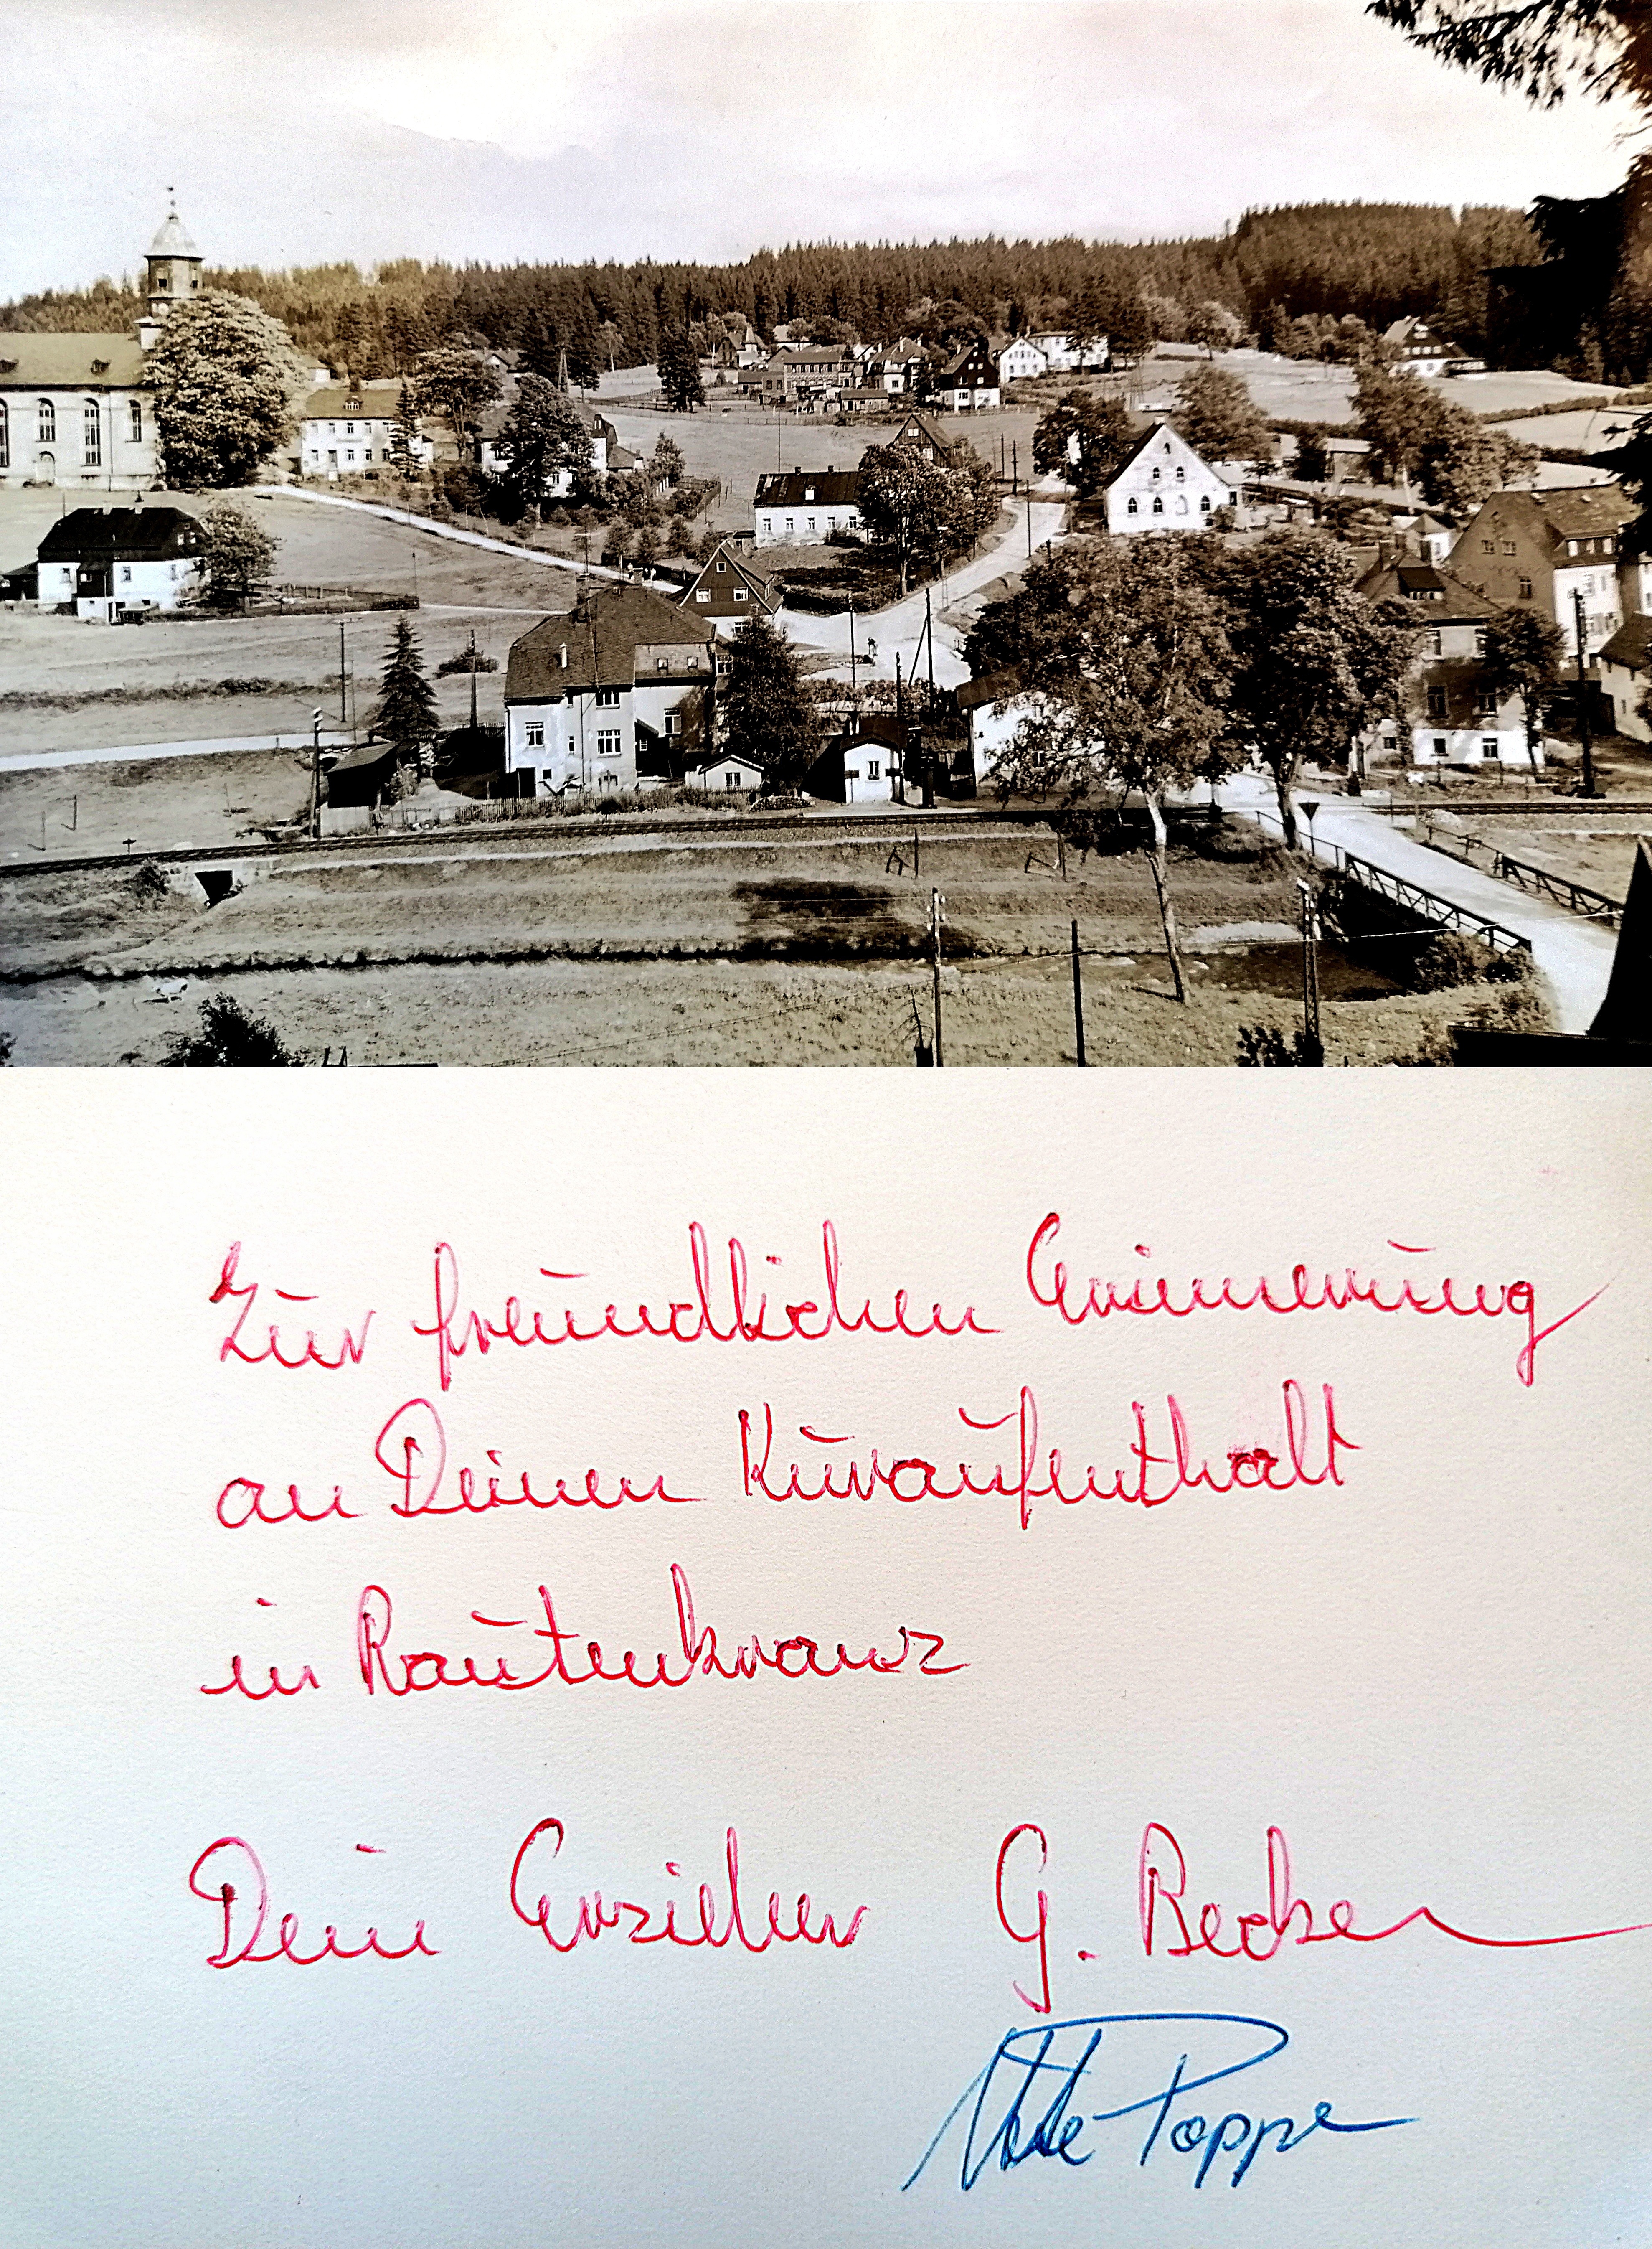 Zur freundlichen Erinnerung
an Deinen Kuraufenthalt
in Rautenkranz
Dein Erzieher G. Becker
Ute Poppe